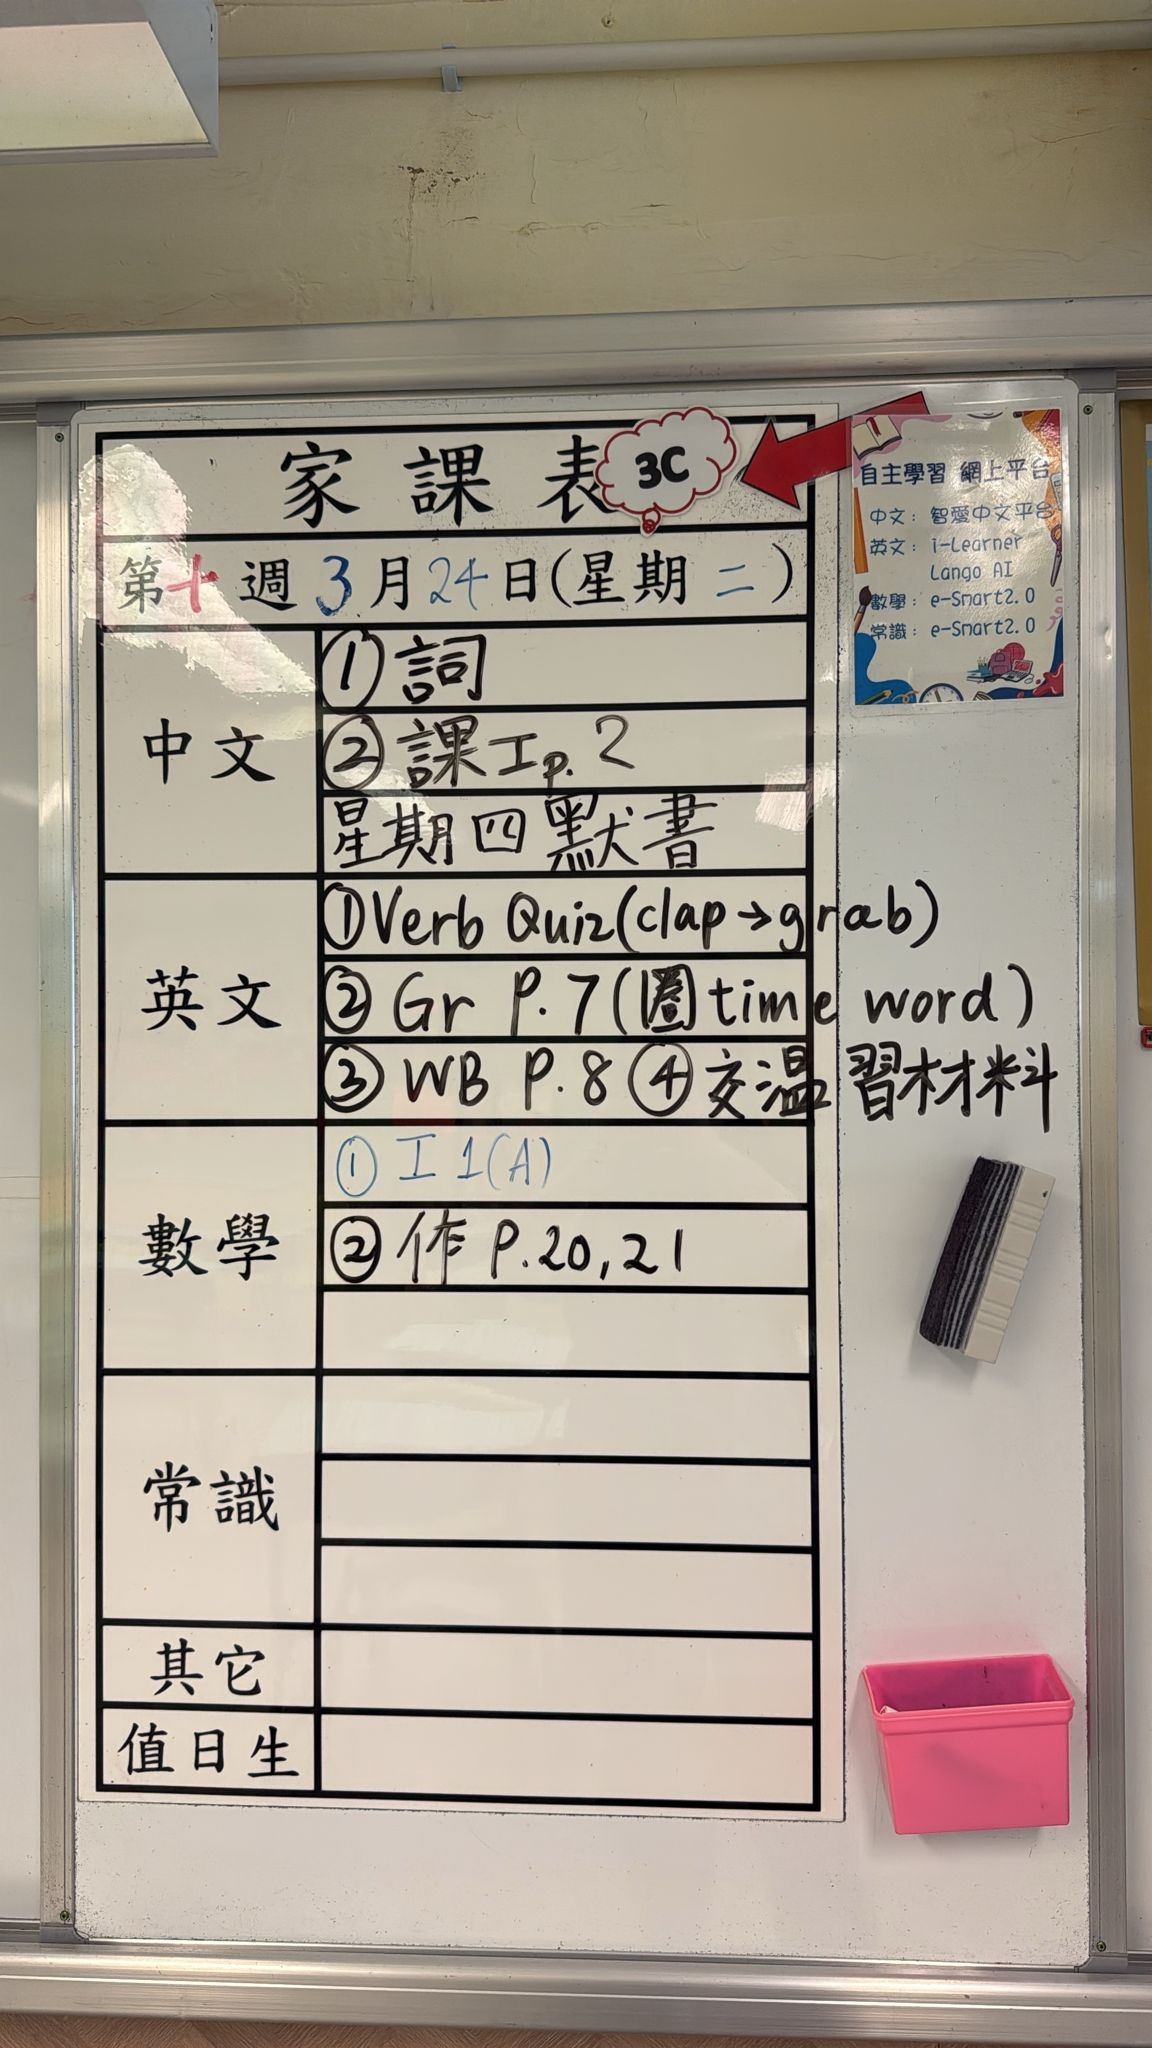 家課表
3C
第十週3月24日(星期二)
中文
①詞
②課工p.2
星期四默書
英文
①Verb Quiz(clap→grab)
②Gr P.7(圈time word)
③WB P.8 ④交溫習材料
數學
①工1(A)
②作P.20,21
常識
其它
值日生
自主學習 網上平台
中文：智愛中文平台
英文：i-Learner
Lango AI
數學：e-Smart2.0
常識：e-Smart2.0